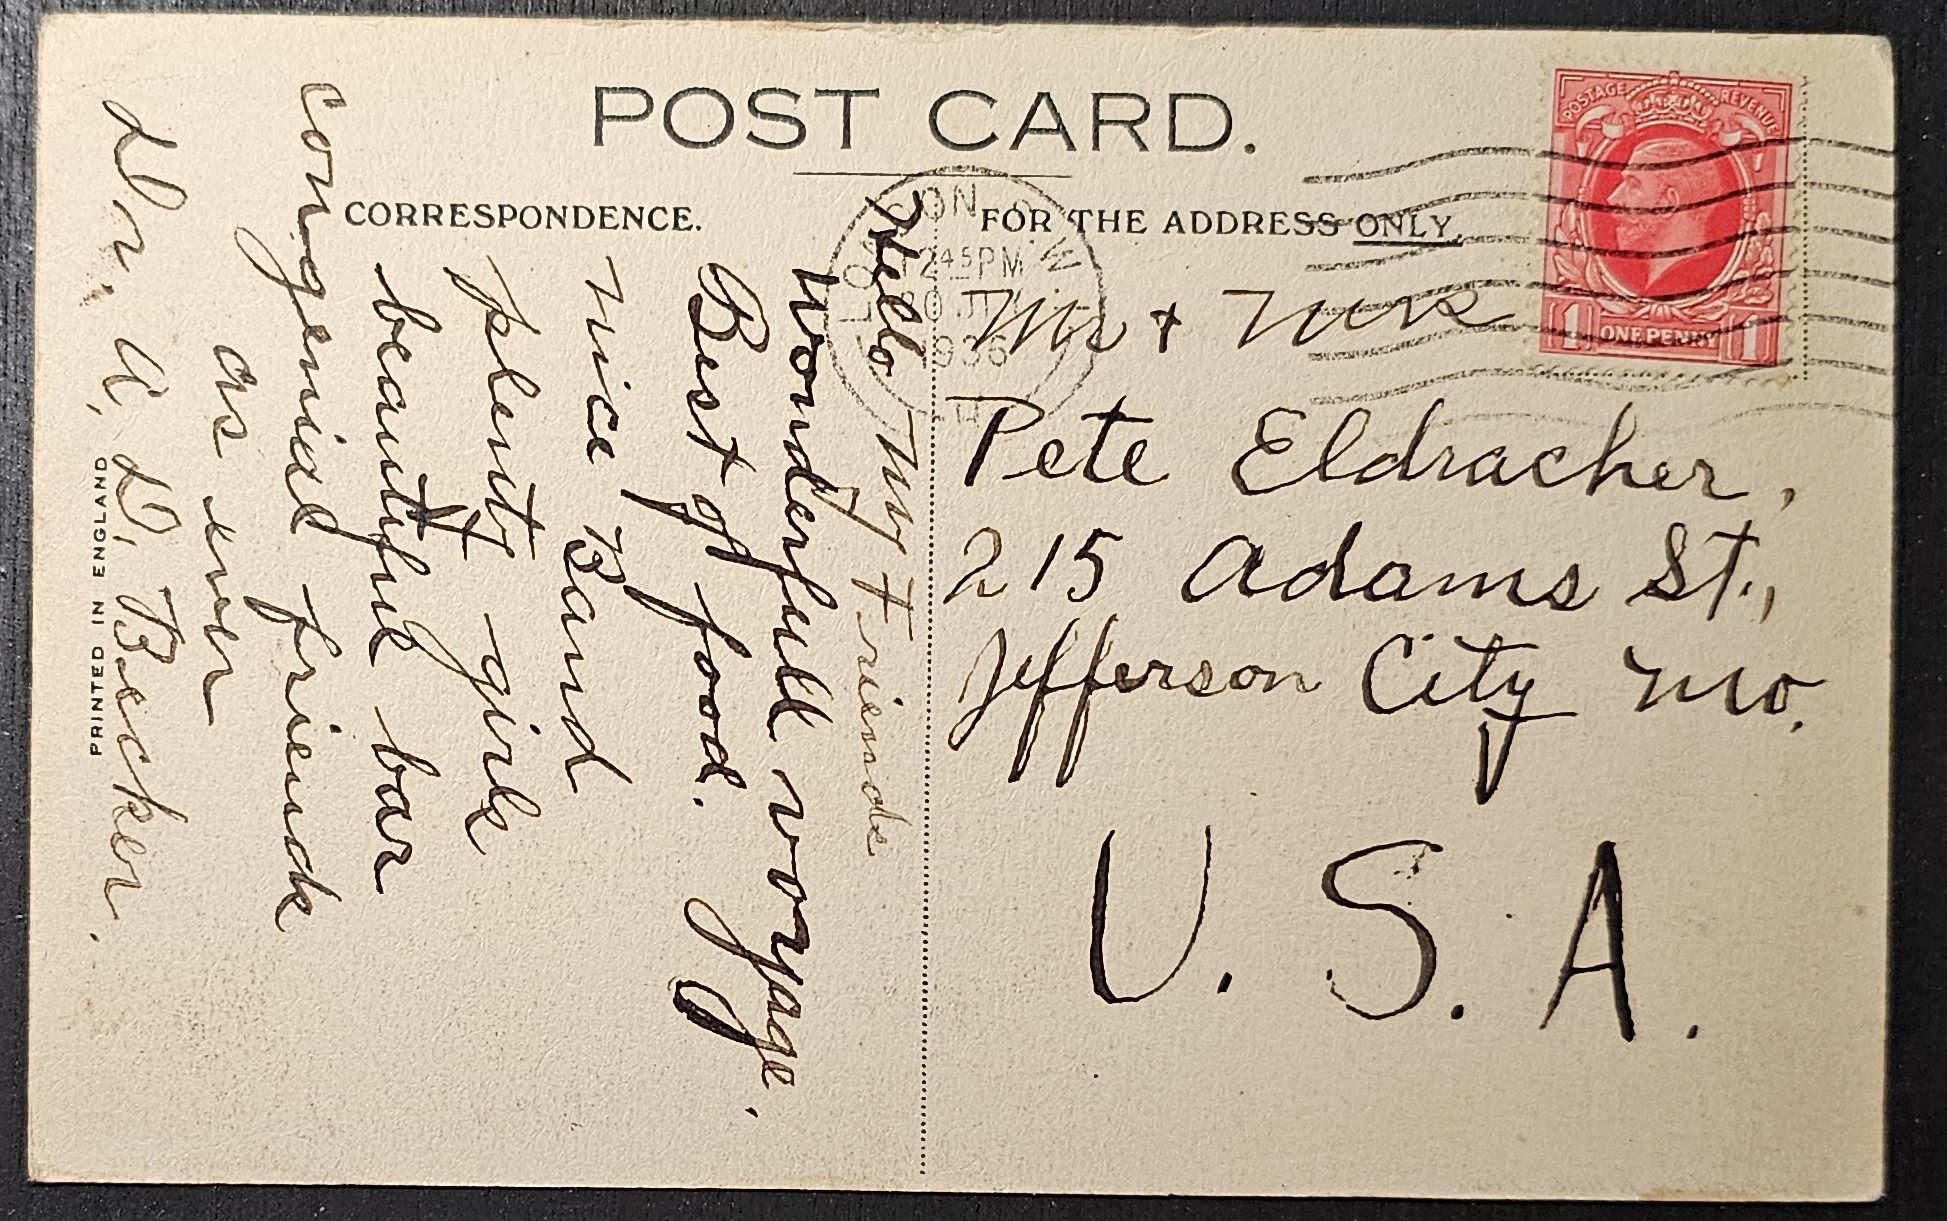 POST CARD.
CORRESPONDENCE.
FOR THE ADDRESS ONLY.
POSTAGE REVENUE
1 ONE PENNY 1
LONDON W
12 45 PM
1936
Mr + Mrs
Pete Eldracher,
215 Adams St.,
Jefferson City Mo.
U. S. A.
Hello My Friends
Wonderfull voyage.
Best of food.
nice Band
plenty girls
beautiful bar
congenial friends
as ever
Dr. A. D. Becker.
PRINTED IN ENGLAND